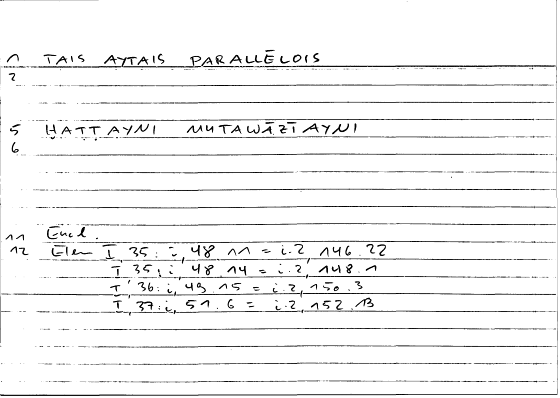 1 TAIS AYTAIS PARALLĒLOIS
2
5 ḤAṬṬAYNI MUTAWĀZĪAYNI
6
11 Eucl.
12 Elem I, 35: i, 48 11 = i.2, 146.22
I 35: i, 48 14 = i.2, 148.1
I 36: i, 49.15 = i.2, 150.3
I, 37: i, 51.6 = i.2, 152.13